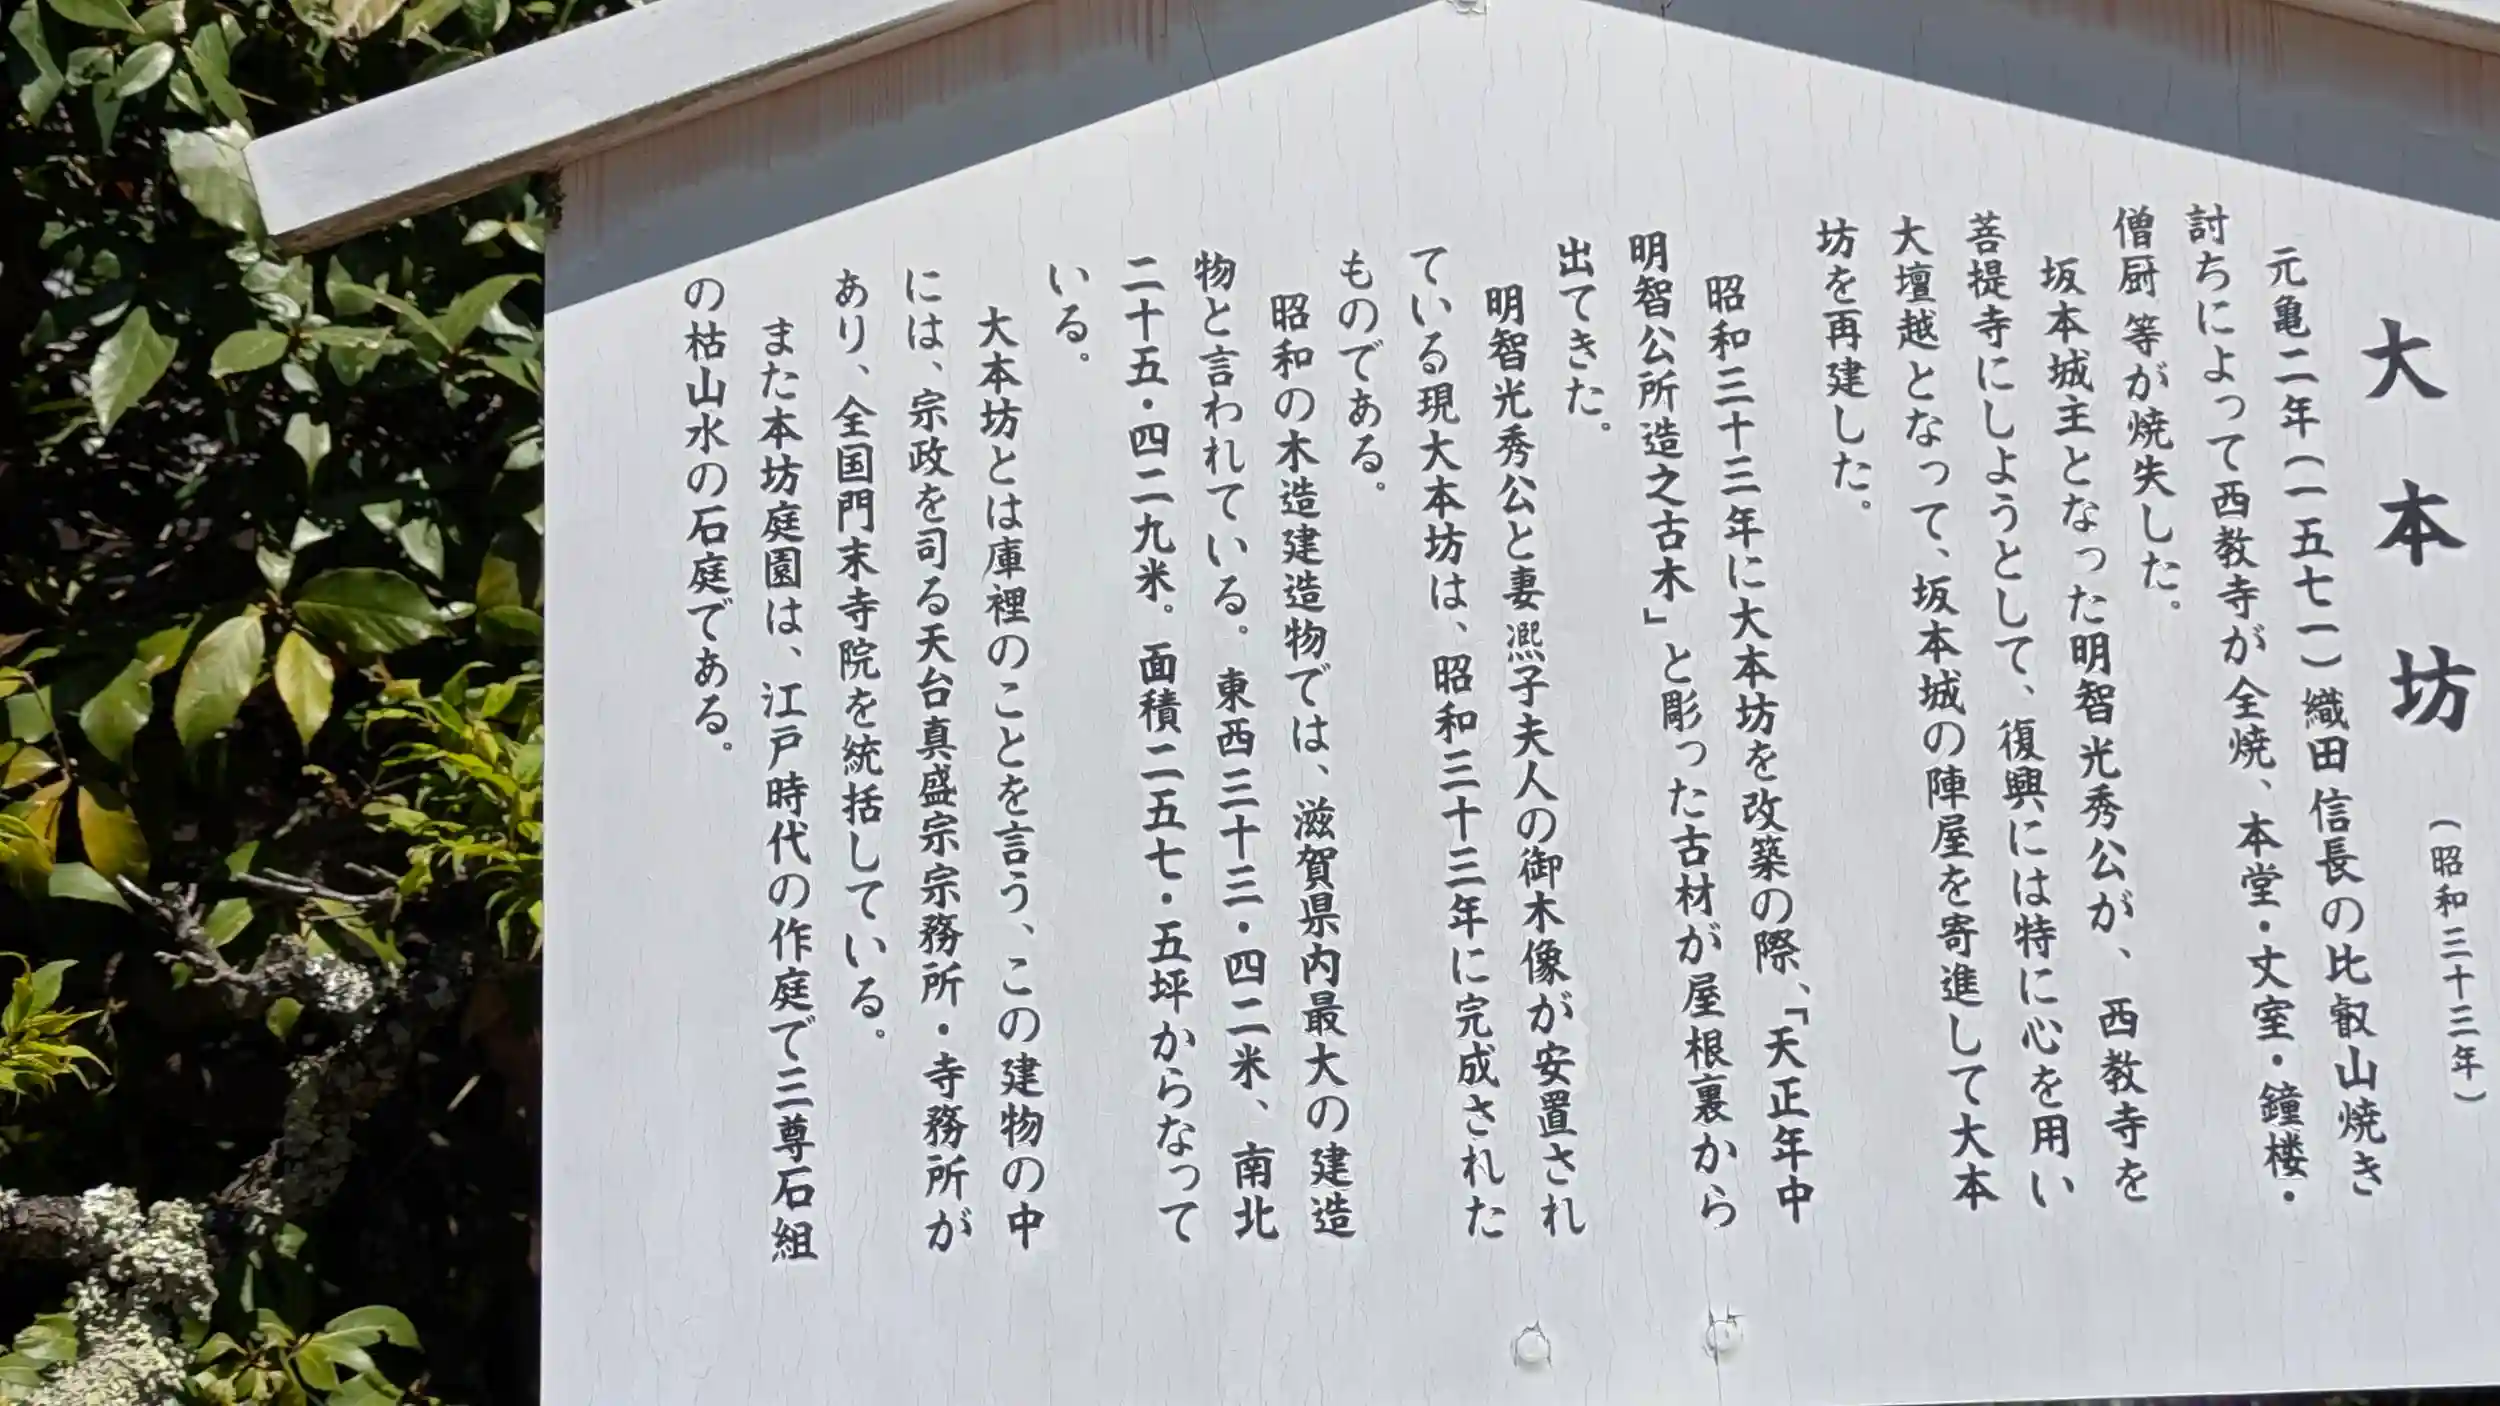 大本坊 (昭和三十三年)
元亀二年(一五七一)織田信長の比叡山焼き
討ちによって西教寺が全焼、本堂・丈室・鐘楼・
僧厨等が焼失した。
坂本城主となった明智光秀公が、西教寺を
菩提寺にしようとして、復興には特に心を用い
大壇越となって、坂本城の陣屋を寄進して大本
坊を再建した。
昭和三十三年に大本坊を改築の際、「天正年中
明智公所造之古木」と彫った古材が屋根裏から
出てきた。
明智光秀公と妻凞子夫人の御木像が安置され
ている現大本坊は、昭和三十三年に完成された
ものである。
昭和の木造建造物では、滋賀県内最大の建造
物と言われている。東西三十三・四二米、南北
二十五・四二九米。面積二五七・五坪からなって
いる。
大本坊とは庫裡のことを言う、この建物の中
には、宗政を司る天台真盛宗宗務所・寺務所が
あり、全国門末寺院を統括している。
また本坊庭園は、江戸時代の作庭で三尊石組
の枯山水の石庭である。